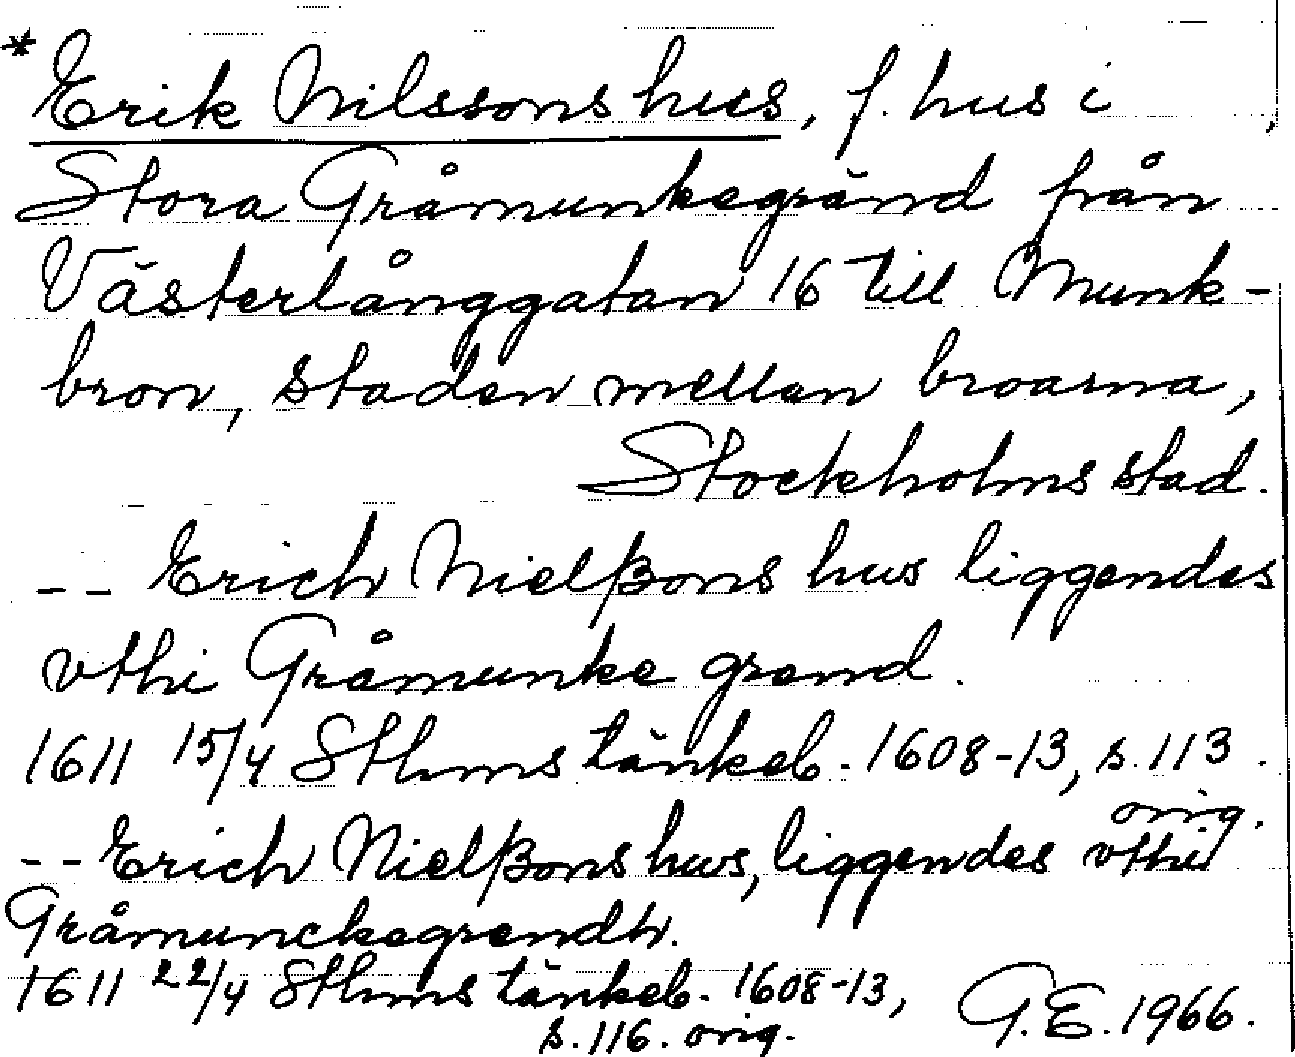 * Erik Nilssons hus, f. hus i
Stora Gråmunkegränd från
Västerlånggatan 16 till Munk-
bron, staden mellan broarna,
Stockholms stad.
-- Erich Nielßons hus liggendes
vthi Gråmunke grend.
1611 15/4 Sthms tänkeb. 1608-13, s. 113.
orig.
-- Erich Nielßons hws, liggendes vthi
Gråmunckegrendh.
1611 22/4 Sthms tänkeb. 1608-13,
s. 116. orig.
G.E. 1966.